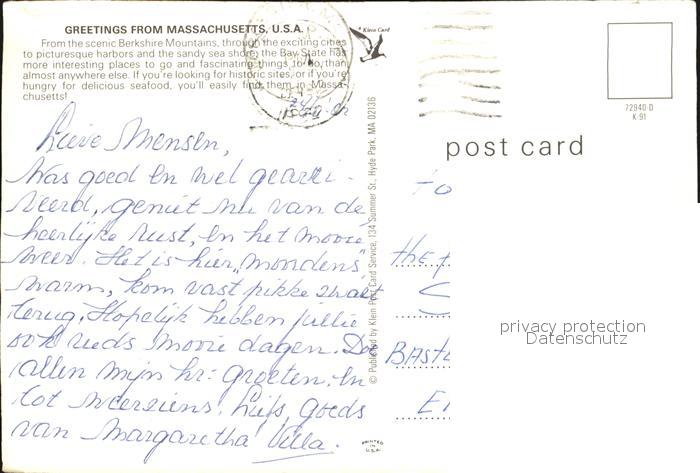 GREETINGS FROM MASSACHUSETTS, U.S.A.
From the scenic Berkshire Mountains, through the exciting cities
to picturesque harbors and the sandy sea shore, the Bay State has
more interesting places to go and fascinating things to do than
almost anywhere else. If you're looking for historic sites, or if you're
hungry for delicious seafood, you'll easily find them in Massa-
chusetts!
Klein Card
72940-D
K-91
post card
Lieve Mensen,
Was goed en wel gearri-
veerd, geniet nu van de
heerlijke rust, en het mooie
weer. Het is hier "moordens"
warm, kom vast pikke zwart
terug. Hopelijk hebben jullie
ook reeds mooie dagen. Doe
allen mijn hr: groeten. En
tot weerziens. Liefs, goeds
van Margaretha Villa.
© Published by Klein Post Card Service, 134 Summer St., Hyde Park, MA 02136
PRINTED
IN
U.S.A.
To
the
BASTL
privacy protection
Datenschutz